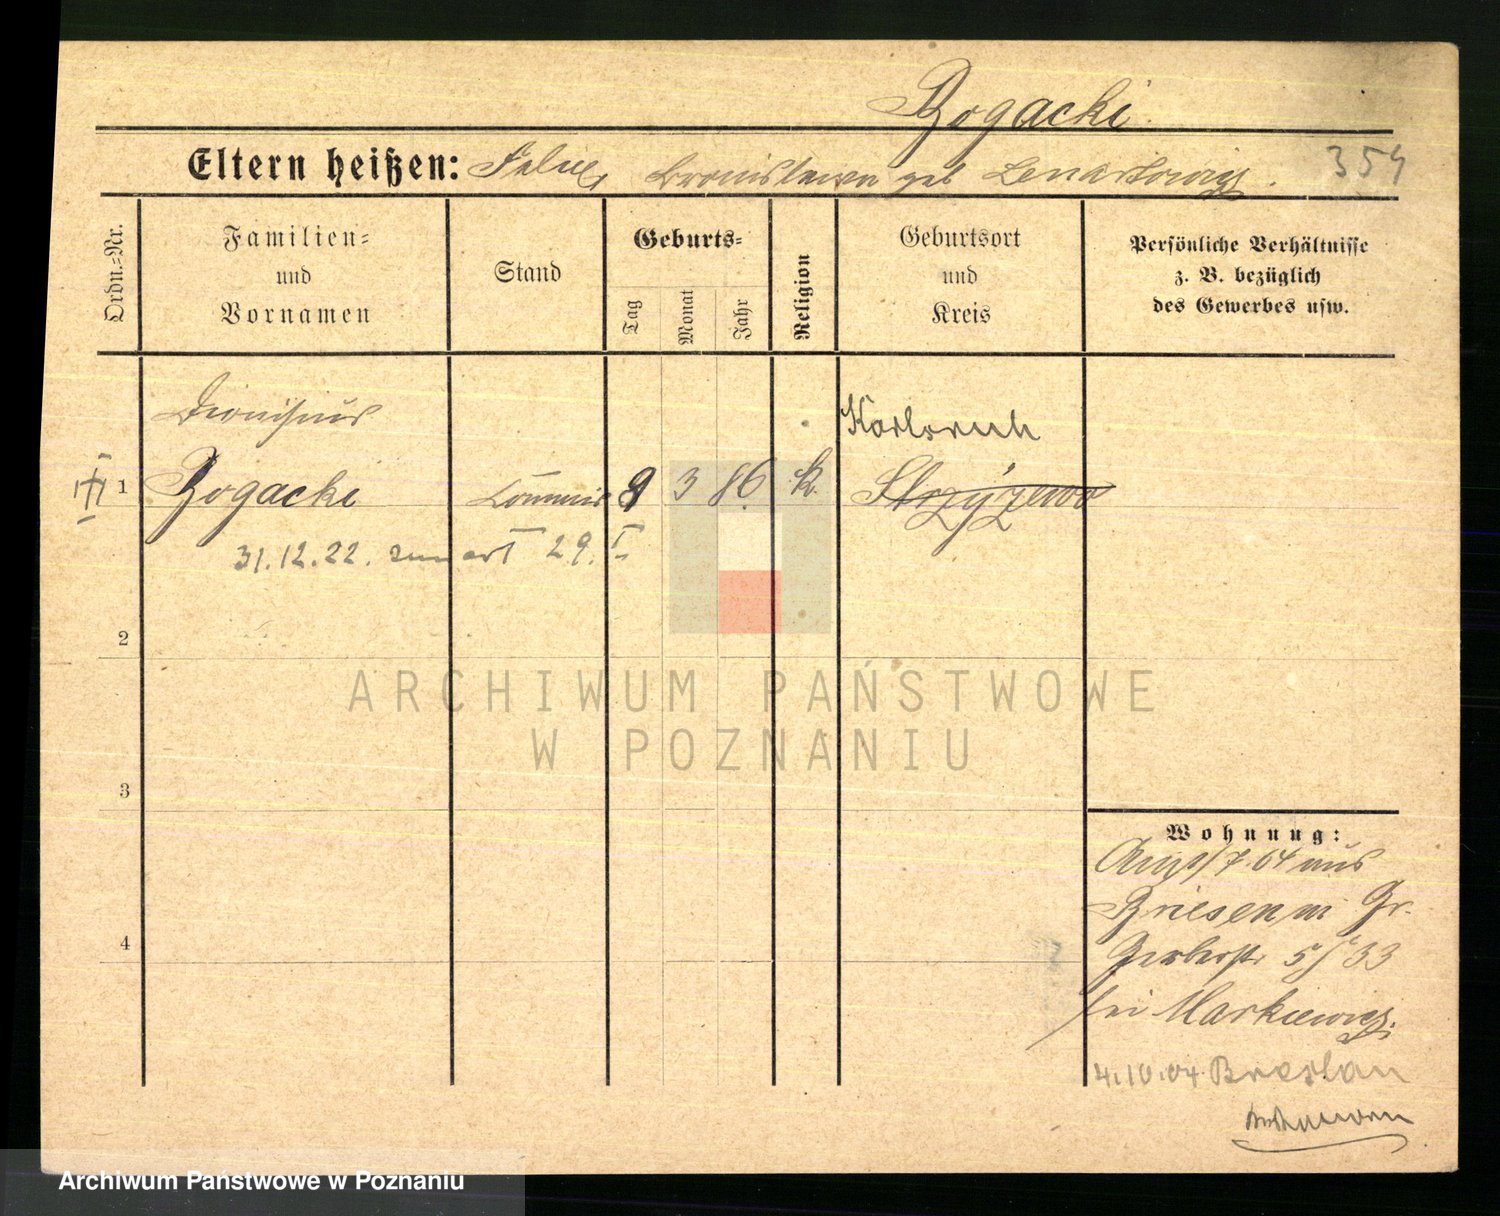 Rogacki
Eltern heißen: Felix, Bronislawa geb Lenartowicz.
354
Ordn.=Nr.
Familien=
und
Vornamen
Stand
Geburts=
Tag
Monat
Jahr
Religion
Geburtsort
und
Kreis
Persönliche Verhältnisse
z. B. bezüglich
des Gewerbes usw.
Dionisius
Karlsruh
1 Rogacki Commis 9 3 86 k. Strzyżewo
31.12.22. 29. I
2
3
4
Wohnung:
7. 04 aus
Briesen Gr.
Gerberstr 33
bei Markiewicz.
4.10.04. Breslau
ARCHIWUM PAŃSTWOWE
W POZNANIU
Archiwum Państwowe w Poznaniu